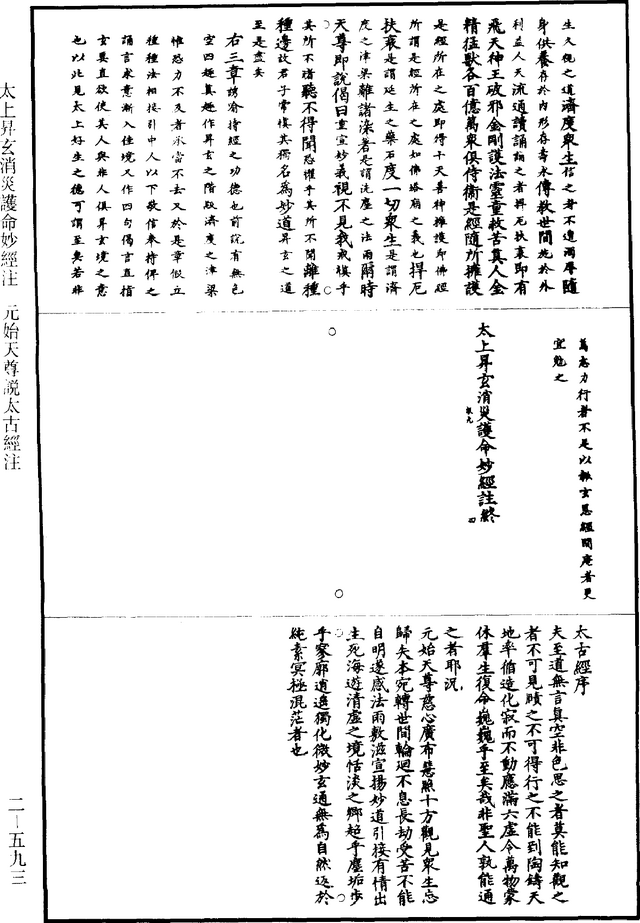 生久視之道濟度眾生信之者不遭濁辱隨
身供養存於內形存壽永傳教世間施於外
利益人天流通讀誦誦之者昇无扶衰即有
飛天神王破邪金剛護法靈童救苦真人金
精猛獸各百億萬眾俱侍衛是經隨所擁護
是經所在之處即得十天善神擁護即佛經
所謂是經所在之處如佛塔廟之義也捍厄
扶衰是謂延生之藥石度一切眾生是謂濟
度之津梁離諸染著是謂洗塵之法雨爾時
天尊即說偈曰重宣妙義視不見我戒慎乎
其所不睹聽不得聞恐懼乎其所不聞離種
種邊故君子常慎其獨名為妙道昇玄之道
至是盡矣
右三章諸俞持經之功德也前說有無色
空四趣真趣作昇玄之階級濟度之津梁
惟恐力不及者永當不去又於是章假立
種種法相接引中人以下敬信奉持俾之
誦言求意漸入佳境又作四句偈言直指
玄奧直欲使其人與非人俱昇玄境之意
也以此見太上好生之德可謂至矣若非
篤志力行者不足以報玄恩經間庵者更
宜勉之
太上昇玄消災護命妙經註終
太古經序
夫至道無言真空非色思之者莫能知觀之
者不可見賾之不可得行之不能到陶鑄天
地率脩造化寂而不動應滿六虛令萬物蒙
休羣生復命巍巍乎至矣哉非聖人孰能通
之者耶況
元始天尊慈心廣布慧照十方觀見眾生忘
歸失本宛轉世間輪迴不息長劫受苦不能
自明遂感法雨敷滋宣揚妙道引接有情出
生死海遊清虛之境恬淡之鄉超乎塵垢步
乎寥廓逍遙獨化微妙玄通無為自然返於
純素冥極混茫者也
太上昇玄消災護命妙經注　元始天尊說太古經注
二—五九三